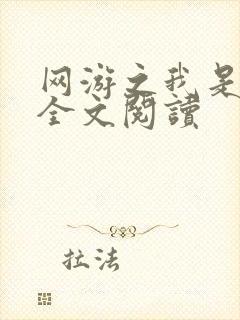 网游之我是
全文閱讀
拉法